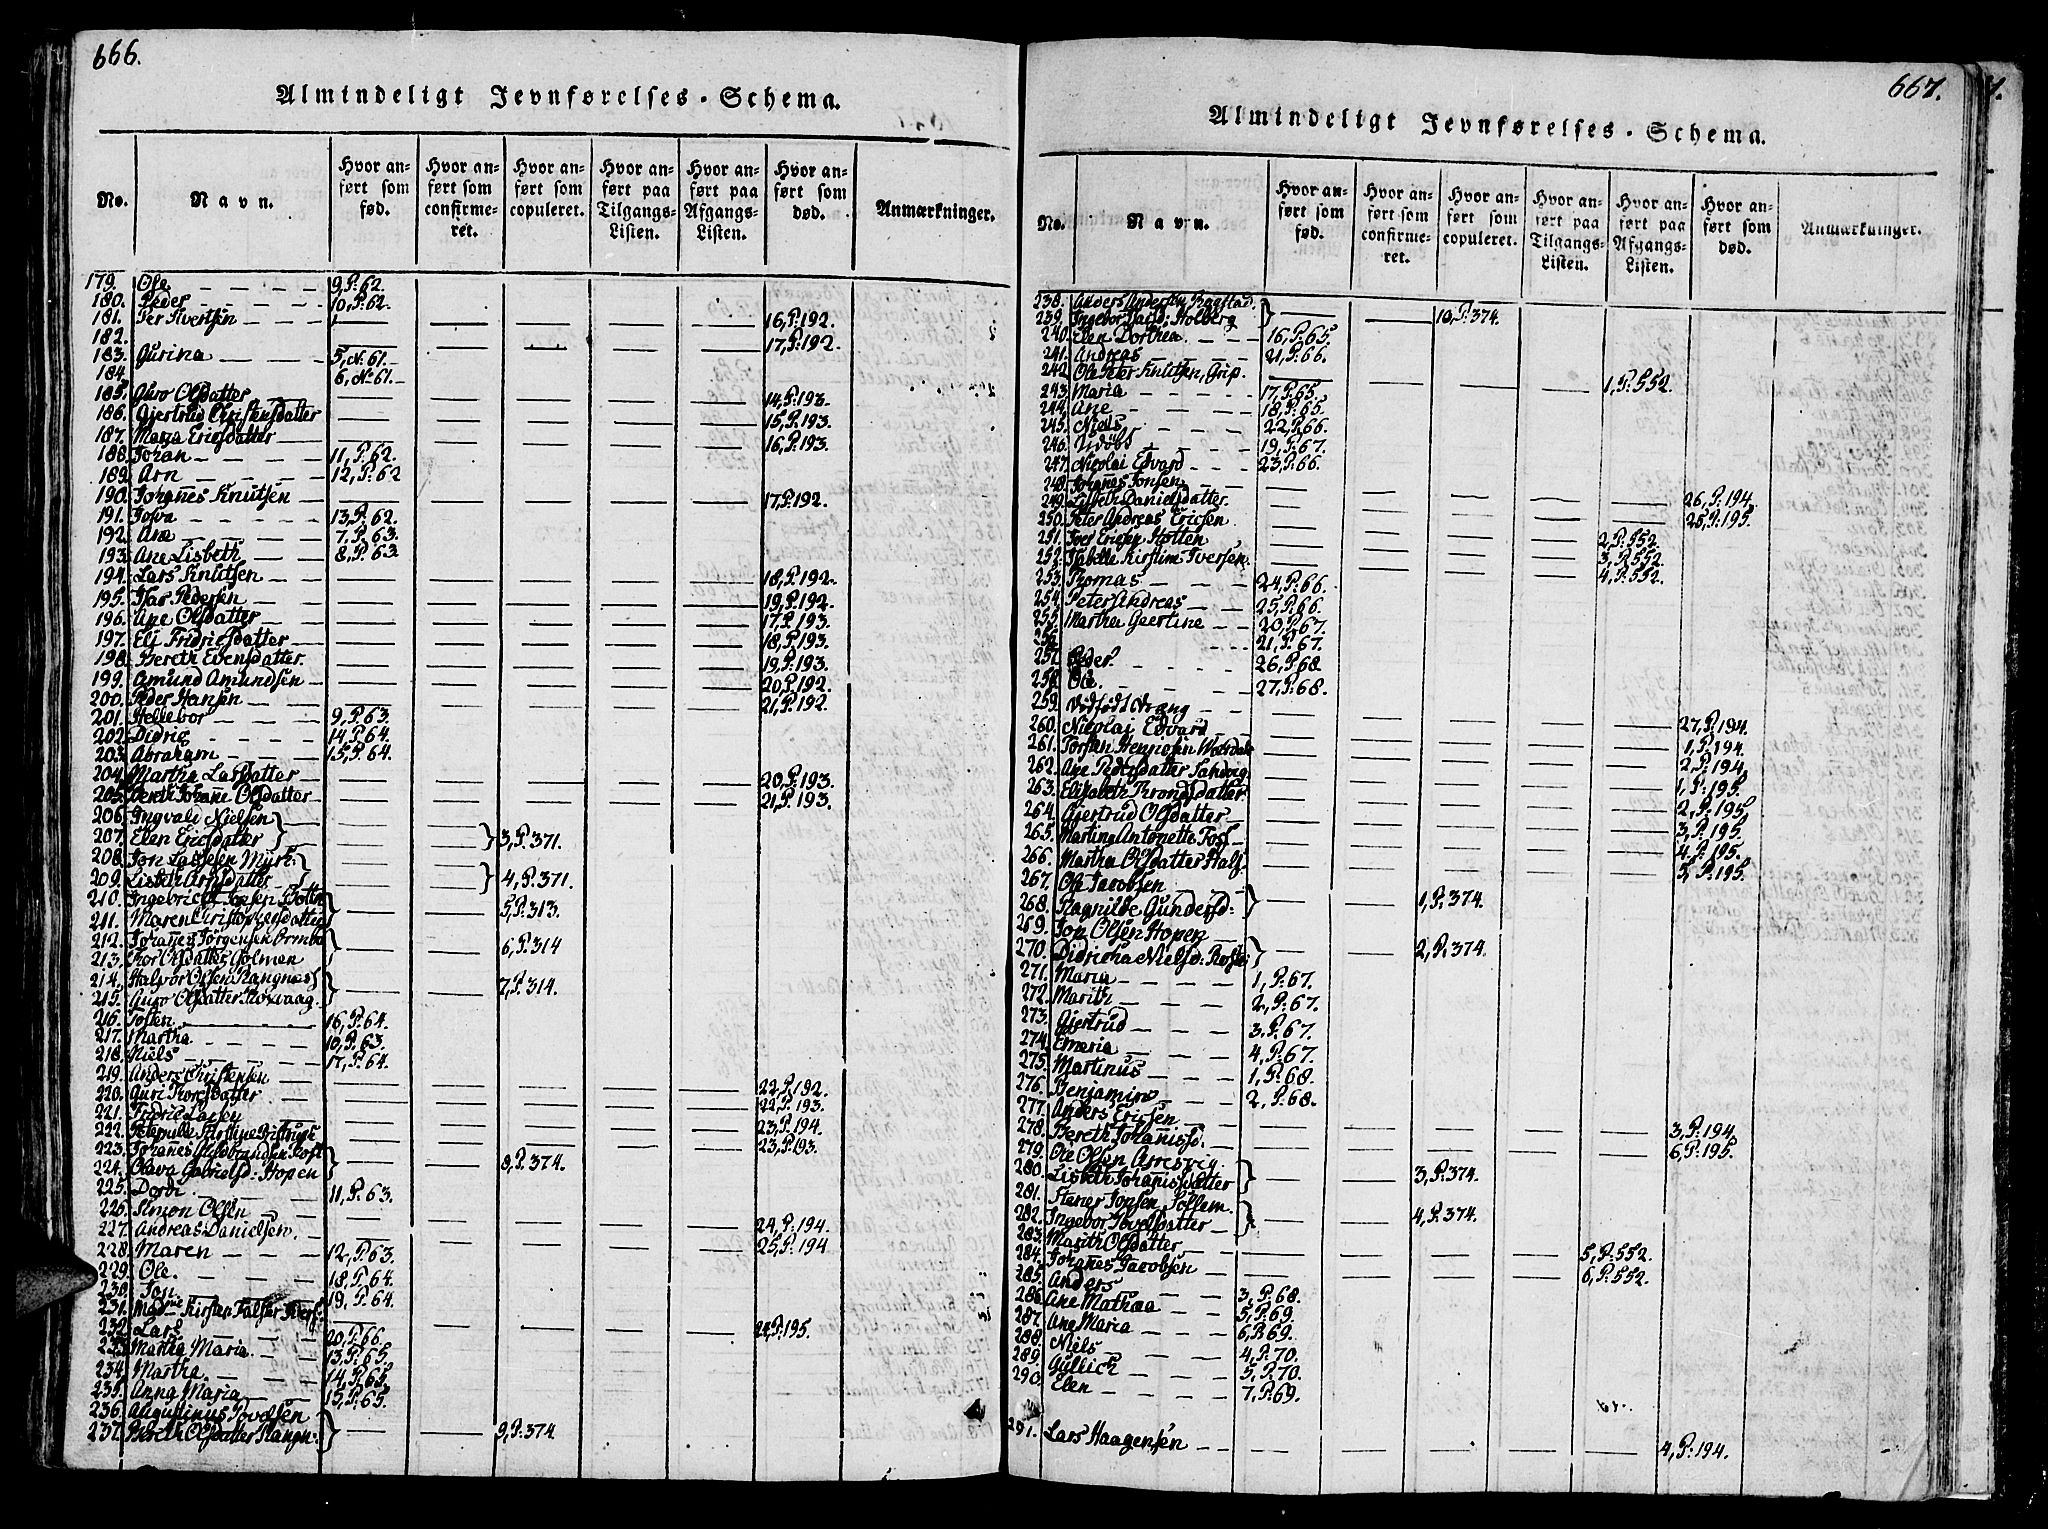 666.
Almindeligt Jevnførelses-Schema.
No. Navn. Hvor anført som fød. Hvor anført som confirmeret. Hvor anført som copuleret. Hvor anført paa Tilgangs-Listen. Hvor anført paa Afgangs-Listen. Hvor anført som død. Anmærkninger.
179. Ole 9, P. 62.
180. Peder 10, P. 62.
181. Per Ivertsen 16, P. 192.
182. 17, P. 192.
183. Gurina 5, N. 61.
184. 6, N. 61.
185. Guro Olsdatter 14, P. 193.
186. Gjertrud Christensdatter 15, P. 193.
187. Maria Ericsdatter 16, P. 193.
188. Johan 11, P. 62.
189. Arn 12, P. 62
190. Johanes Knutsen 17, P. 192.
191. Josva 13, P. 62.
192. Ane 7, P. 63.
193. Ane Lisbeth 8, P. 63
194. Lars Knutsen 18, P. 192.
195. Ifar Pedersen 19, P. 192.
196. Ane Olsdatter 17, P. 193.
197. Eli Fridricsdatter 18, P. 193.
198. Bereth Evensdatter 19, P. 193.
199. Amund Amundsen 20, P. 192.
200. Peder Hansen 21, P. 192.
201. Hellebor 9, P. 63.
202. Didric 14, P. 64.
203. Abraham 15, P. 64.
204. Martha Larsdatter 20, P. 193.
205. Bereth Johane Olsdatter 21, P. 193.
206. Ingvald Nielsen
207. Elen Ericsdatter 3, P. 371.
208. Jon Larssen Myrh.
209. Lisbeth Arnsdatter 4, P. 371.
210. Ingebricth Joesen
211. Maren Christophersdatter 5, P. 313.
212. Johanes Jörgensen
213. Olsdatter Golmen 6, P. 314
214. Halvor Olsen Rangnes
215. Guro Olsdatter Roxvaag. 7, P. 314.
216. Tosten 16, P. 64.
217. Martha 10, P. 63.
218. Niels 17, P. 64.
219. Anders Christensen 22, P. 192.
220. Guri Thorsdatter 22, P. 193.
221. Fridric Larsen 23, P. 194.
222. Peternille 23, P. 193.
223. Johanes Hildebrandsen
224. Olava Gabrielsd: Hopen 8, P. 374.
225. Dordi 11, P. 63.
226. Simon Olsen 24, P. 194.
227. Andreas Danielsen. 25, P. 194
228. Maren 12, P. 63.
229. Ole. 18, P. 64.
230. Jon. 19, P. 64.
231. Mad^me Kirsten Falser 22, P. 195.
232. Lars 20, P. 66.
233. Martha Maria 13, P. 65.
234. Martha 14, P. 65.
235. Anna Maria 15, P. 65.
236. Augustinus Povelsen
237. Bereth Olsdatter Rangn: 9, P. 374.
667.
Almindeligt Jevnførelses-Schema.
No. Navn. Hvor anført som fød. Hvor anført som confirmeret. Hvor anført som copuleret. Hvor anført paa Tilgangs-Listen. Hvor anført paa Afgangs-Listen. Hvor anført som død. Anmærkninger.
238. Anders Andersen
239. Ingebor Holberg 10, P. 374.
240. Elen Dorthea 16, P. 65.
241. Andreas 21, P. 66.
242. Ole Peter Knutsen, Grip. 1, P. 552.
243. Maria 17, P. 65.
244. Ane 18, P. 65.
245. Niels 22, P. 66.
246. 19, P. 67.
247. Nicolai Edvard 23, P. 66.
248. Johanes Jonsen 26, P. 194.
249. Lisbeth Danielsdatter 25, P. 195.
250. Peter Andreas Ericsen. 2, P. 552.
251. Iver Ericsen Holten 3, P. 552.
252. Isabella Kirstine Iversen. 4, P. 552.
253. Thomas 24, P. 66.
254. Peter Andreas 25, P. 66.
255. Martha Geertine 20, P. 67.
256. 21, P. 67.
257. Peder. 26, P. 68
258. Ole. 27, P. 68.
259. 27, P. 194.
260. Nicolai Edvard 1, P. 194.
261. Torsten 2, P. 194.
262. Ane Pedersdatter Sandvig 1, P. 195.
263. Elisabeth Tronsdatter 2, P. 195
264. Gjertrud Olsdatter 3, P. 195.
265. Martine Antonette Foss 4, P. 195.
266. Martha Olsdatter Hals 5, P. 195.
267. Ole Jacobsen
268. Ragnilde Gundersd: 1, P. 374.
269. Jon Olsen Hopen
270. Didricha Nielsd: 2, P. 374.
271. Maria 1, P. 67.
272. Marith 2, P. 67.
273. Gjertrud 3, P. 67.
274. Emeria 4, P. 67.
275. Martinus 1, P. 68.
276. Benjamin 2, P. 68.
277. Anders Ericsen. 3, P. 194.
278. Bereth Johanisd. 6, P. 195.
279. Ole Olsen Arresvig.
280. Lisbeth Johanisdatter 3, P. 374.
281. Stener Jonsen Sollem
282. Ingebor Povelsdatter 4, P. 374.
283. Marith Olsdatter 5, P. 552.
284. Johanes Jacobsen 6, P. 552.
285. Anders 3, P. 68.
286. Ane Mathea 5, P. 69.
287. Ane Maria 6, P. 69.
288. Niels 4, P. 70.
289. Gullich 5, P. 70.
290. Elen 7, P. 69.
291. Lars Haagensen 4, P. 194.